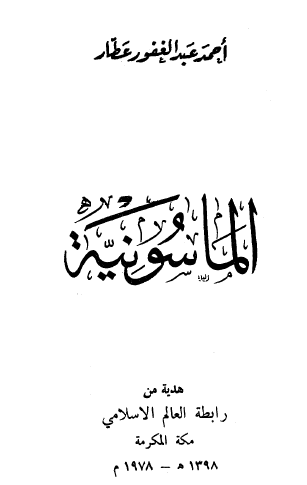 أحمد عبد الغفور عطار
الماسونية
هدية من
رابطة العالم الاسلامي
مكة المكرمة
١٣٩٨ هـ – ١٩٧٨ م